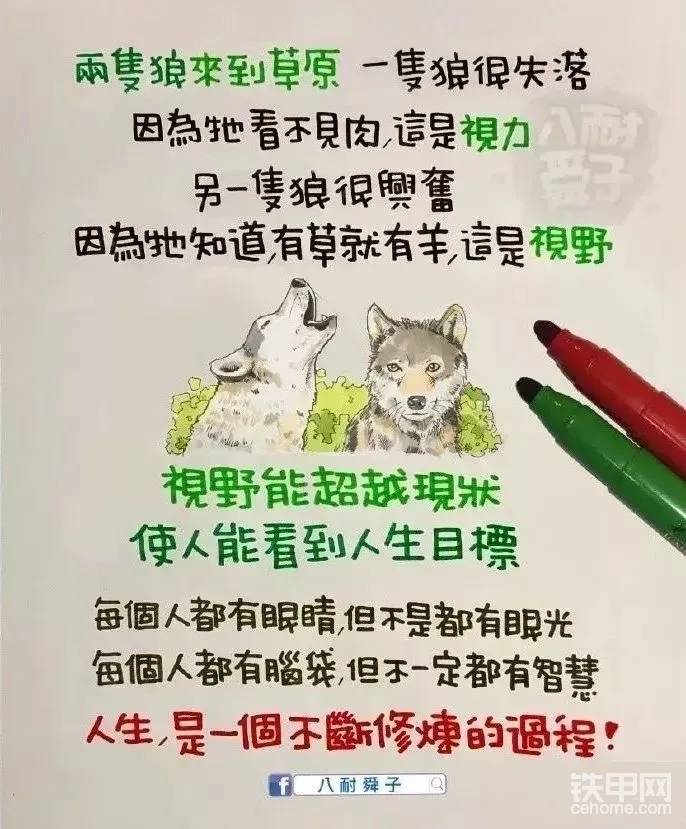 兩隻狼來到草原 一隻狼很失落
因為牠看不見肉,這是視力
八耐
舜子
另一隻狼很興奮
因為牠知道,有草就有羊,這是視野
視野能超越現狀
使人能看到人生目標
每個人都有眼睛,但不是都有眼光
每個人都有腦袋,但不一定都有智慧
人生,是一個不斷修煉的過程!
f 八耐舜子
铁甲网
cehome.com